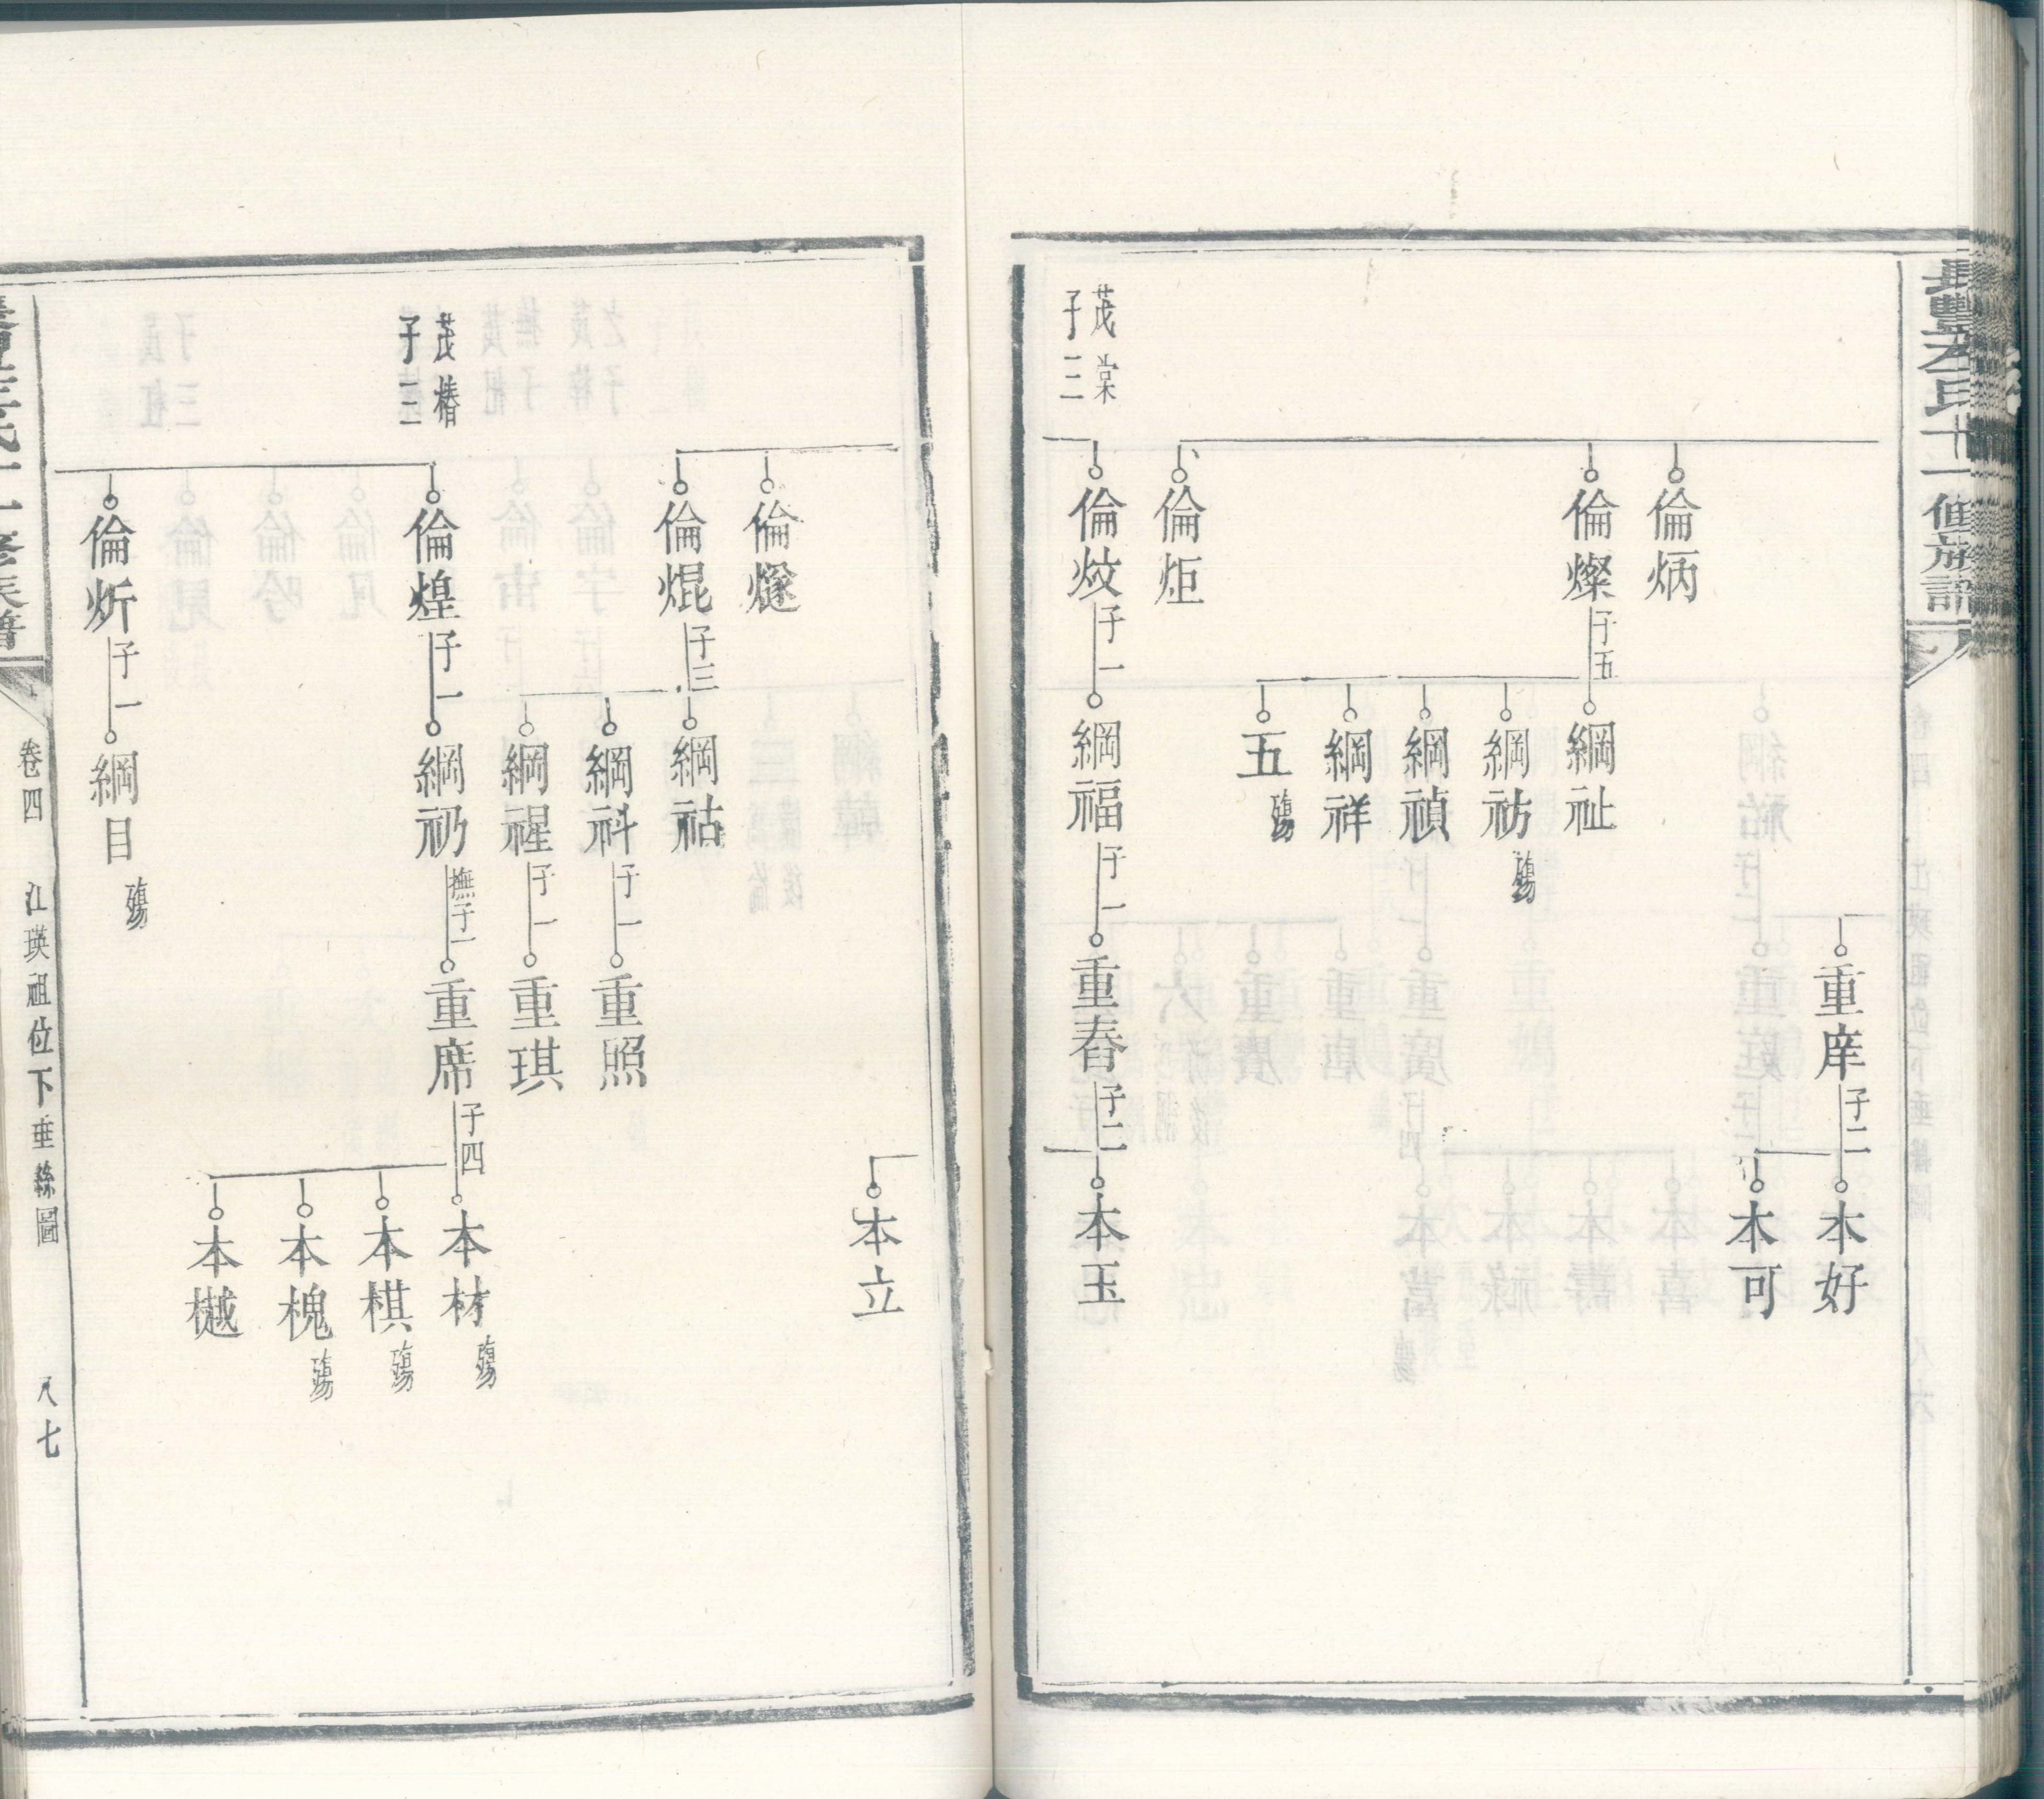 倫炳
倫燦
子五
倫炬
茂棠
子三
倫炆
子一
綱祉
綱祊
殤
綱禎
綱祥
五
殤
綱福
子一
重庠
子二
重春
子二
本好
本可
本玉
倫燧
倫焜
子三
茂椿
子三
倫煌
子一
倫炘
子一
綱祜
綱科
子一
綱禋
子一
綱礽
撫子一
綱目
殤
重照
重琪
重席
子四
本立
本材
殤
本棋
殤
本槐
殤
本樾
卷四
江瑛祖位下垂絲圖
八七